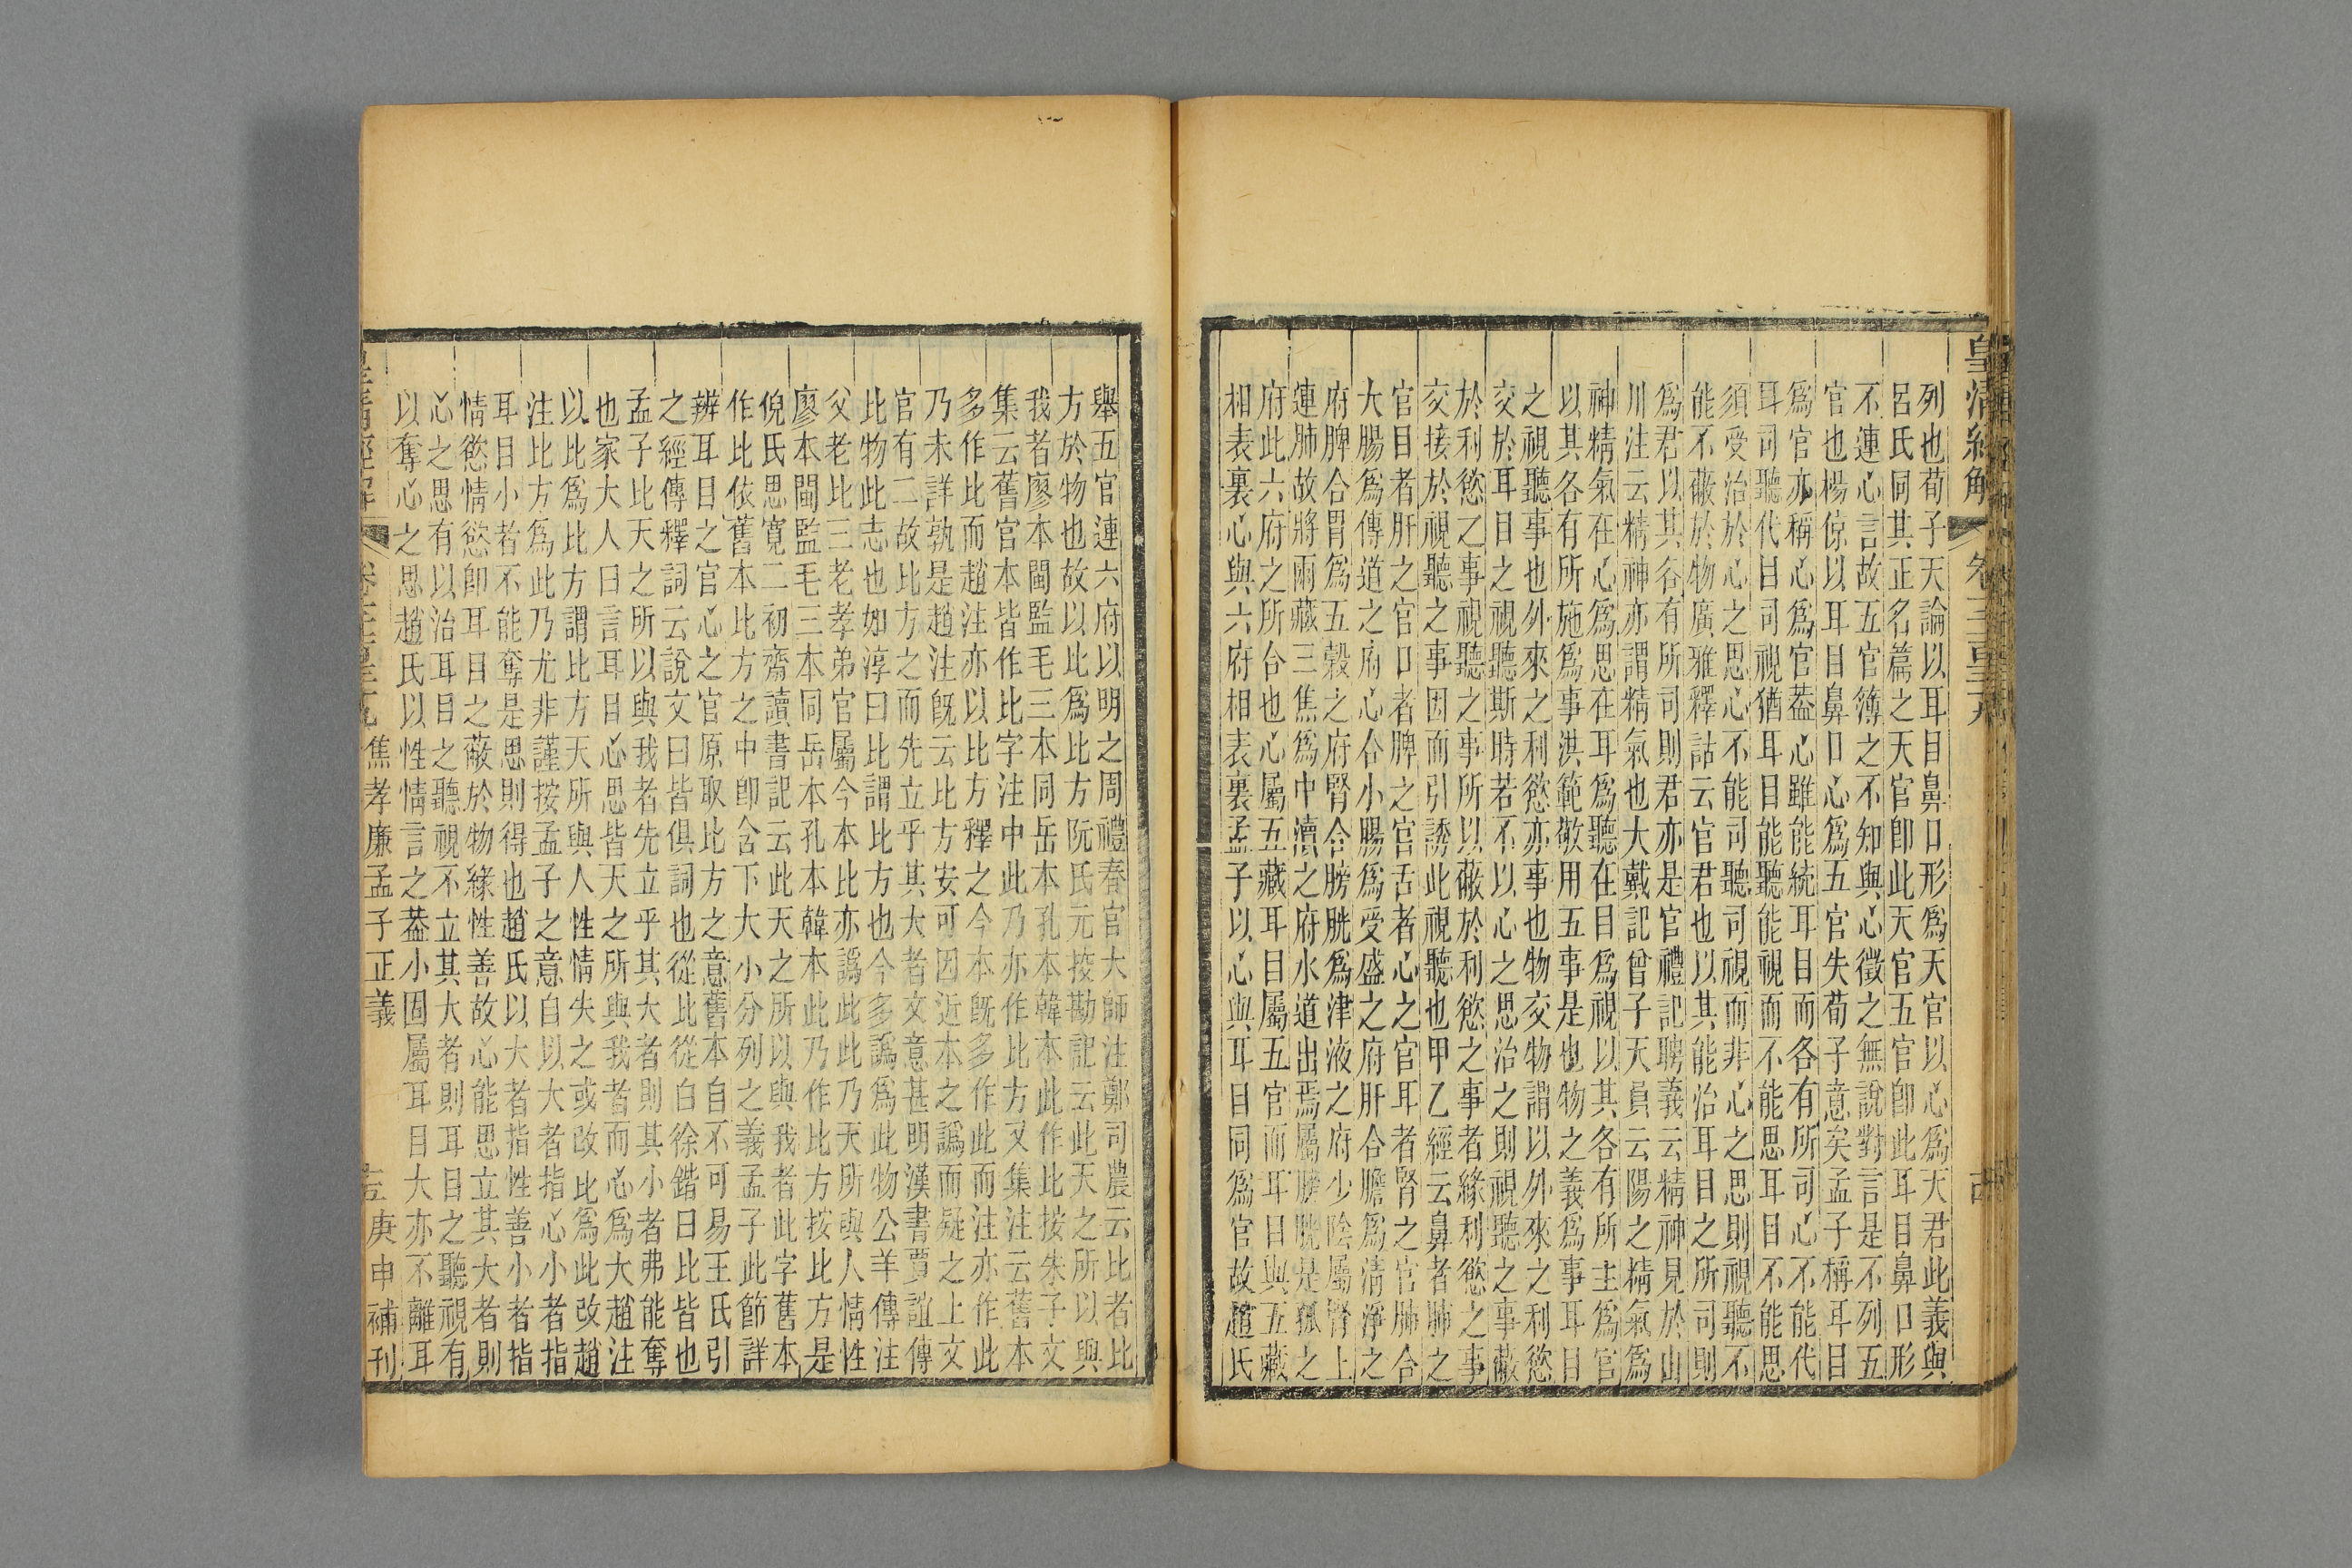 皇清經解
列也荀子天論以耳目鼻口形爲天官以心爲天君此義與
呂氏同其正名篇之天官卽此天官五官卽此耳目鼻口形
不連心言故五官簿之不知與心徵之無說對言是不列五
官也楊倞以耳目鼻口心爲五官失荀子意矣孟子稱耳目
爲官亦稱心爲官葢心雖能統耳目而各有所司心不能代
耳司聽代目司視猶耳目能聽能視而不能思耳目不能思
須受治於心之思心不能司聽司視而非心之思則視聽不
能不蔽於物廣雅釋詁云官君也以其能治耳目之所司則
爲君以其各有所司則君亦是官禮記聘義云精神見於山
川注云精神亦謂精氣也大戴記曾子天員云陽之精氣爲
神精氣在心爲思在耳爲聽在目爲視以其各有所主爲官
以其各有所施爲事洪範敬用五事是也物之義爲事耳目
之視聽事也外來之利慾亦事也物交物謂以外來之利慾
交於耳目之視聽斯時若不以心之思治之則視聽之事蔽
於利慾之事視聽之事所以蔽於利慾之事者緣利慾之事
交接於視聽之事因而引誘此視聽也甲乙經云鼻者肺之
官目者肝之官口者脾之官舌者心之官耳者腎之官肺合
大腸爲傳道之府心合小腸爲受盛之府肝合膽爲清淨之
府脾合胃爲五穀之府腎合膀胱爲津液之府少陰屬腎上
連肺故將兩藏三焦爲中瀆之府水道出焉屬膀胱是孤之
府此六府之所合也心屬五藏耳目屬五官而耳目與五藏
相表裏心與六府相表裏孟子以心與耳目同爲官故趙氏
舉五官連六府以明之周禮春官大師注鄭司農云比者比
方於物也故以此爲比方阮氏元挍勘記云此天之所以與
我者廖本閩監毛三本同岳本孔本韓本此作比按朱子文
集云舊官本皆作比字注中此乃亦作比方又集注云舊本
多作比而趙注亦以比方釋之今本旣多作此而注亦作此
乃未詳孰是趙注旣云比方安可因近本之譌而疑之上文
官有二故比方之而先立乎其大者文意甚明漢書賈誼傳
比物此志也如淳曰比謂比方也今多譌爲此物公羊傳注
父老比三老孝弟官屬今本比亦譌此此乃天所與人情性
廖本閩監毛三本同岳本孔本韓本此乃作比方按比方是
倪氏思寬二初齋讀書記云此天之所以與我者此字舊本
作比依舊本比方之中卽含下大小分列之義孟子此節詳
辨耳目之官心之官原取比方之意舊本自不可易王氏引
之經傳釋詞云說文曰皆俱詞也從比從白徐鍇曰比皆也
孟子比天之所以與我者先立乎其大者則其小者弗能奪
也家大人曰言耳目心思皆天之所與我者而心爲大趙注
以比爲比方謂比方天所與人性情失之或改比爲此改趙
注比方爲此乃尤非謹按孟子之意自以大者指心小者指
耳目小者不能奪是思則得也趙氏以大者指性善小者指
情慾情慾卽耳目之蔽於物緣性善故心能思立其大者則
心之思有以治耳目之聽視不立其大者則耳目之聽視有
以奪心之思趙氏以性情言之葢小固屬耳目大亦不離耳
焦孝廉孟子正義
庚申補刊